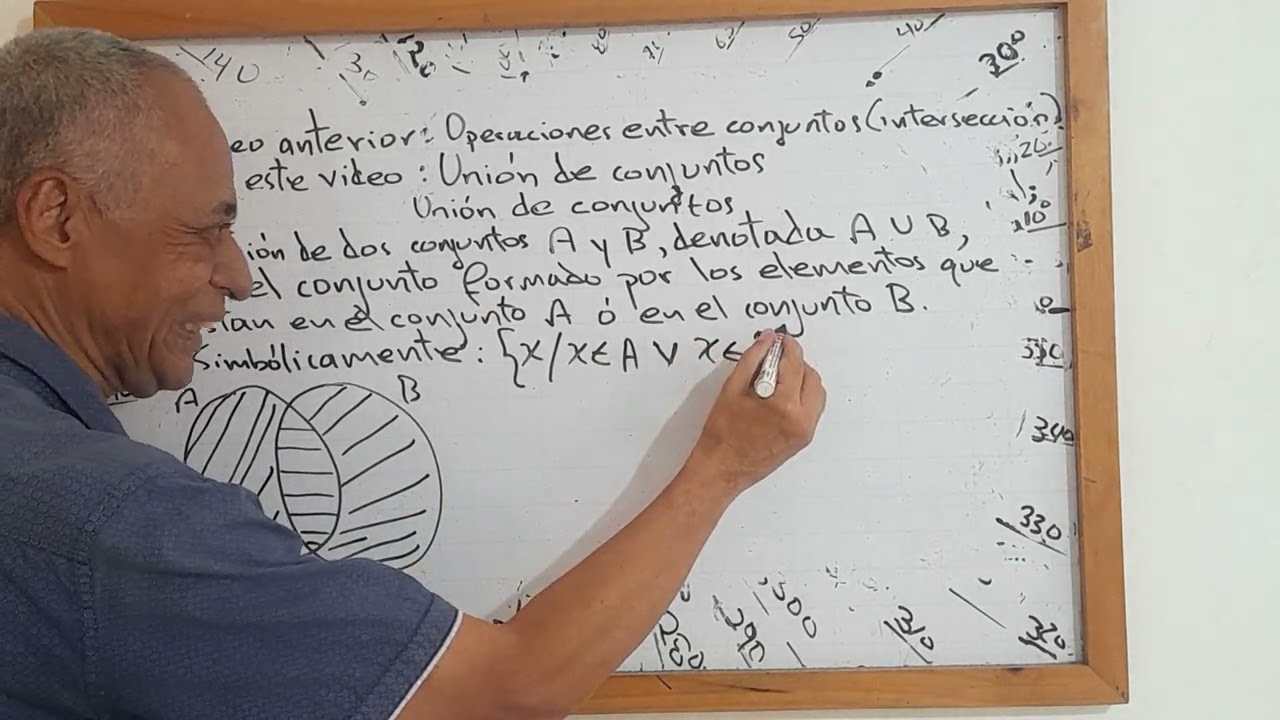 140
30
70
80
60
50
40
300
eo anterior: Operaciones entre conjuntos (intersección)
20
este video: Unión de conjuntos
Unión de conjuntos
10
ión de dos conjuntos A y B, denotada A ∪ B,
el conjunto formado por los elementos que
tan en el conjunto A ó en el conjunto B.
0
Simbólicamente: {x/x∈A ∨ x∈
350
A B
340
330
300
290
310
320